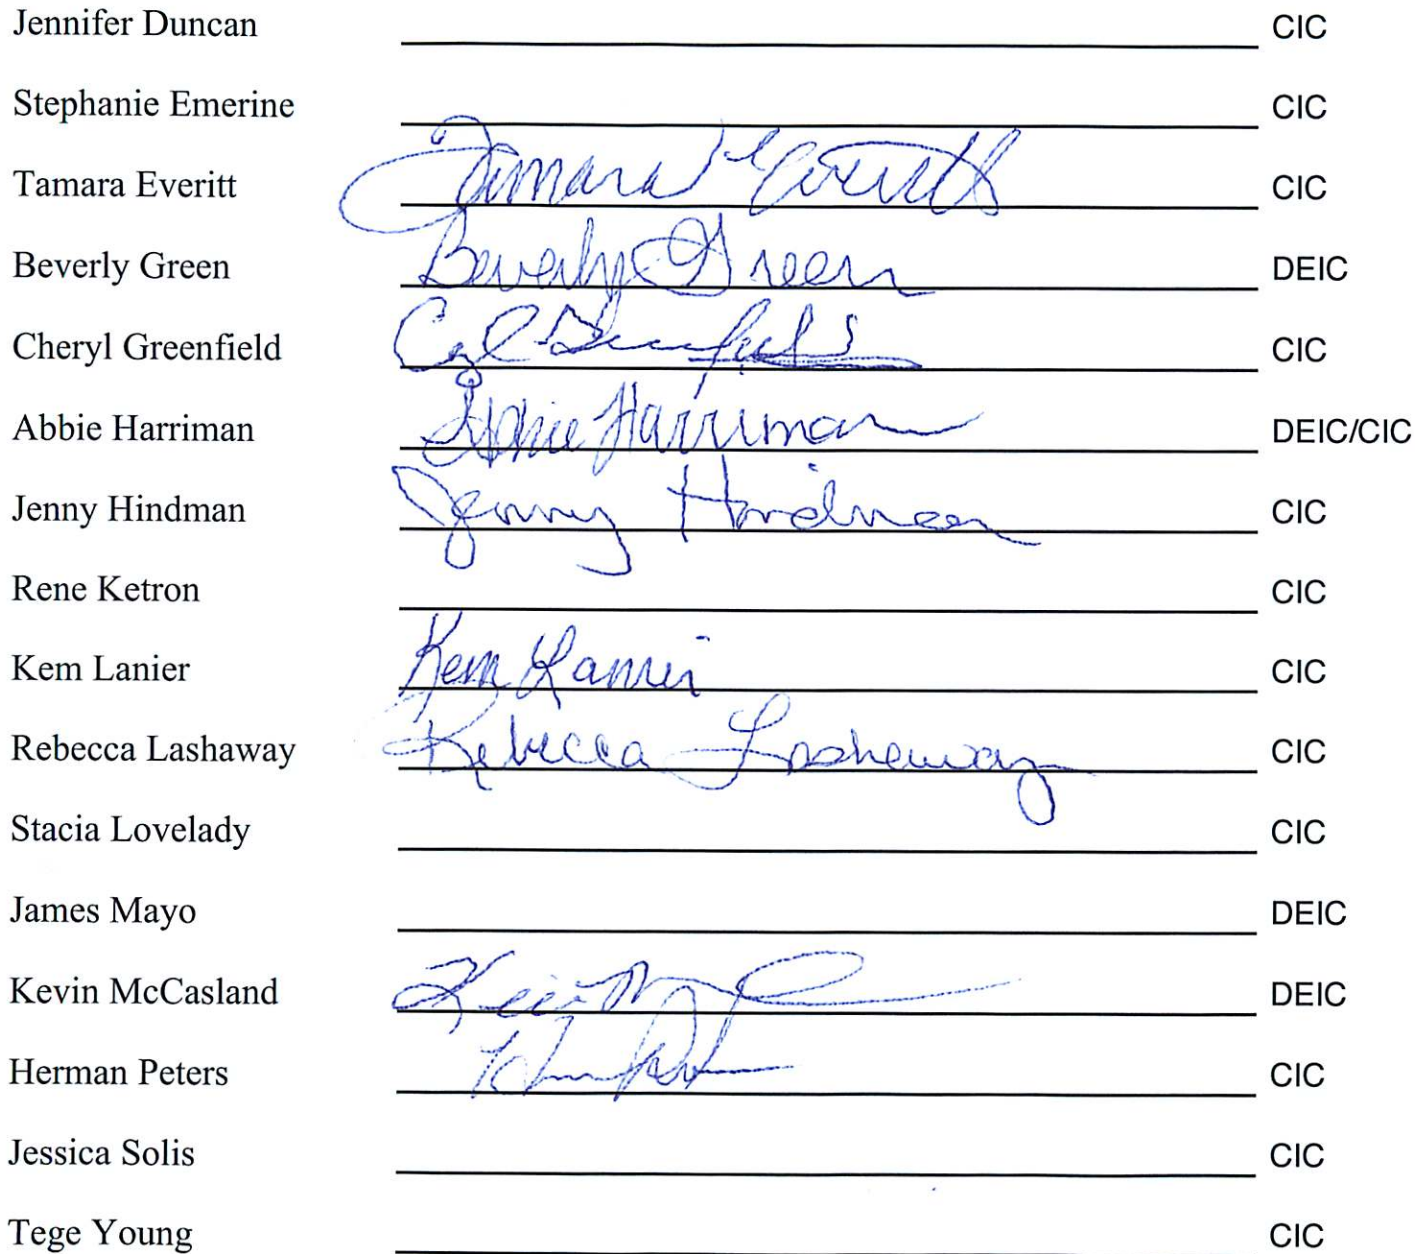 Jennifer Duncan CIC
Stephanie Emerine CIC
Tamara Everitt Tamara Everitt CIC
Beverly Green Beverly Green DEIC
Cheryl Greenfield CIC
Abbie Harriman Abbie Harriman DEIC/CIC
Jenny Hindman Jenny Hindman CIC
Rene Ketron CIC
Kem Lanier Kem Lanier CIC
Rebecca Lashaway Rebecca Lashaway CIC
Stacia Lovelady CIC
James Mayo DEIC
Kevin McCasland DEIC
Herman Peters CIC
Jessica Solis CIC
Tege Young CIC